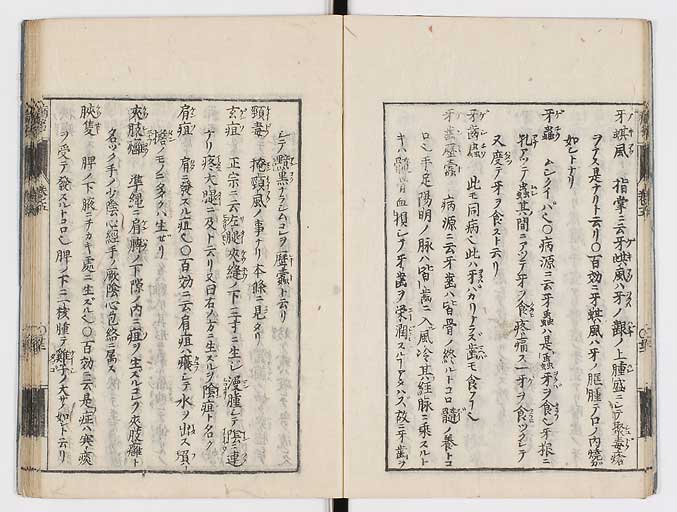 牙蜞風 指掌ニ云牙蜞風ハ牙ノ齦ノ上腫盛ニシテ聚毒瘡
ヲナス是ナリト云リ〇百効ニ牙蜞風ハ牙ノ匡腫テ口ノ内焼カ
如シトナリ
牙蟲 ムシクイバ也〇病源ニ云牙蟲ハ是蟲牙ヲ食也牙根ニ
孔アツテ蟲其間ニアツテ牙ノ食疼痛ス一牙ヲ食ツクシテ
又度テ牙ヲ食スト云リ
牙齒蟲 此モ同病也此ハ牙バカリナラズ齒モ食フナリ
牙齒歷蠹 病源ニ云牙齒ハ皆骨ノ終ルトコロ髓ノ養トコ
ロ也手足陽明ノ脉ハ皆齒ニ入風冷其經脉ニ乘スルト
キハ髓骨血損シテ牙齒ヲ榮潤スルコアタハズ故ニ牙齒ヲ
シテ黯黑ナラシムコレヲ歷蠹ト云リ
頸毒 掩頸風ノ事ナリ本條ニ見タリ
玄疽 正宗ニ云左腿夾縫ノ下二寸ニ生シ漫腫シテ陰ニ連
ナリ疼大腿ニ及ト云リ又曰右ノ方ニ生スルヲ陰疽ト名ク
肩疽 肩ニ發スル疽也〇百効ニ云肩疽ハ癢シテ水ヲ出ス
擔ノモノニ多クハ生ゼリ
夾肢癰 準繩ニ肩髆ノ下際ノ内ニ疽ヲ生スルコヲ夾肢癰ト
名ツク手ノ少陰心經手ノ厥陰心包絡ニ屬ス
脥隻 脾ノ下腋ニチカキ處ニ生ズル也〇百効ニ云是症ハ寒痰
ヲ受テ發スルトコロ也脾ノ下ニ核腫テ雞子ノ大サノ如シト云リ